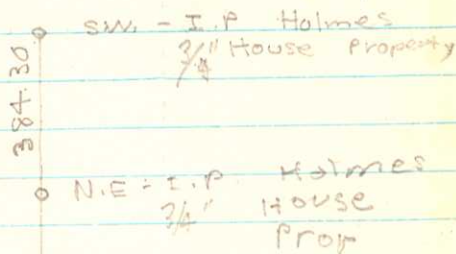 S.W. - I.P Holmes
3/4" House Property
384.30
N.E - I.P Holmes
3/4" House
Prop